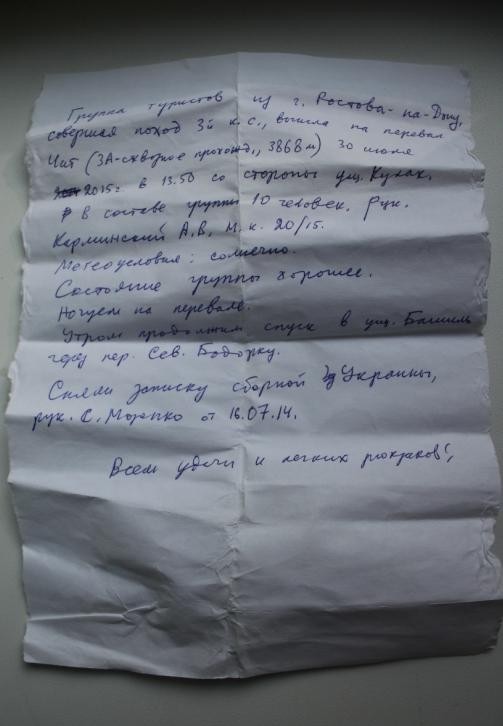 Группа туристов из г. Ростова-на-Дону,
совершая поход 3й к.с., вышла на перевал
Чат (3А-сквозное прохожд., 3868м) 30 июля
2015г. в 13.50 со стороны ущ. Кулак.
В составе группы 10 человек. Рук.
Карминский А.В. М.к. 20/15.
Метеоусловия: солнечно.
Состояние группы хорошее.
Ночуем на перевале.
Утром продолжим спуск в ущ. Башиль
через пер. Сев. Бодорку.
Сняли записку сборной Украины,
рук. С. от 16.07.14.
Всем удачи и легких рюкзаков!